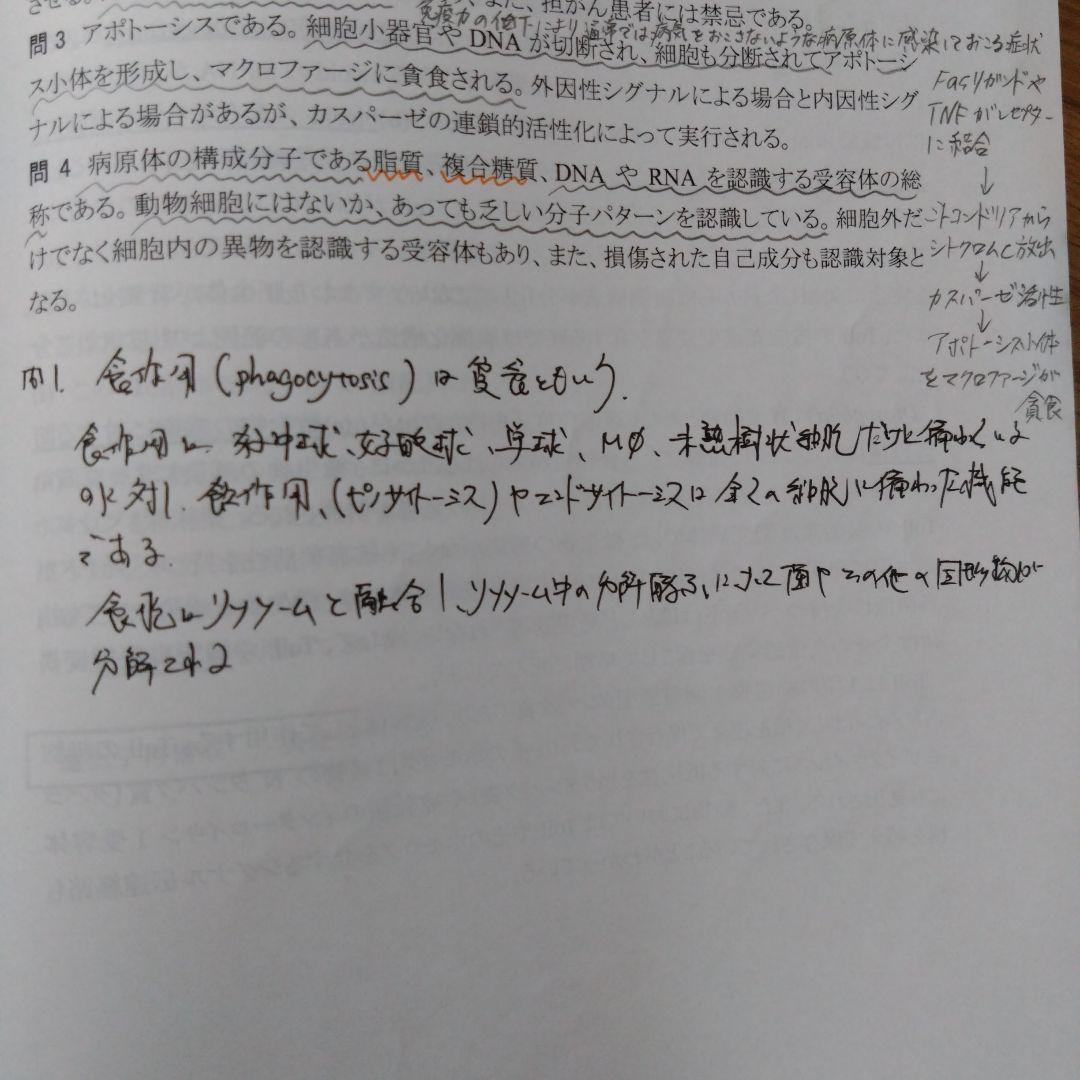 させる。 また、担がん患者には禁忌である。
免疫力の低下により通常では病気をおこさないような病原体に感染しておこる症状
問3 アポトーシスである。細胞小器官やDNAが切断され、細胞も分断されてアポトーシ
ス小体を形成し、マクロファージに貪食される。外因性シグナルによる場合と内因性シグ
ナルによる場合があるが、カスパーゼの連鎖的活性化によって実行される。
Fasリガンドや
TNFがレセプター
に結合
↓
ミトコンドリアから
シトクロムC放出
↓
カスパーゼ活性
↓
アポトーシス小体
をマクロファージが
貪食
問4 病原体の構成分子である脂質、複合糖質、DNAやRNAを認識する受容体の総
称である。動物細胞にはないか、あっても乏しい分子パターンを認識している。細胞外だ
けでなく細胞内の異物を認識する受容体もあり、また、損傷された自己成分も認識対象と
なる。
問1. 食作用(phagocytosis)は貪食ともいう.
食作用は 好中球、好酸球、単球、Mφ、未熟樹状細胞だけに備わっている
のに対し、飲作用、(ピノサイトーシス)やエンドサイトーシスは全ての細胞に備わった機能
である.
食胞はリソソームと融合し、リソソーム中の分解酵素によって菌やその他の固形物が
分解される